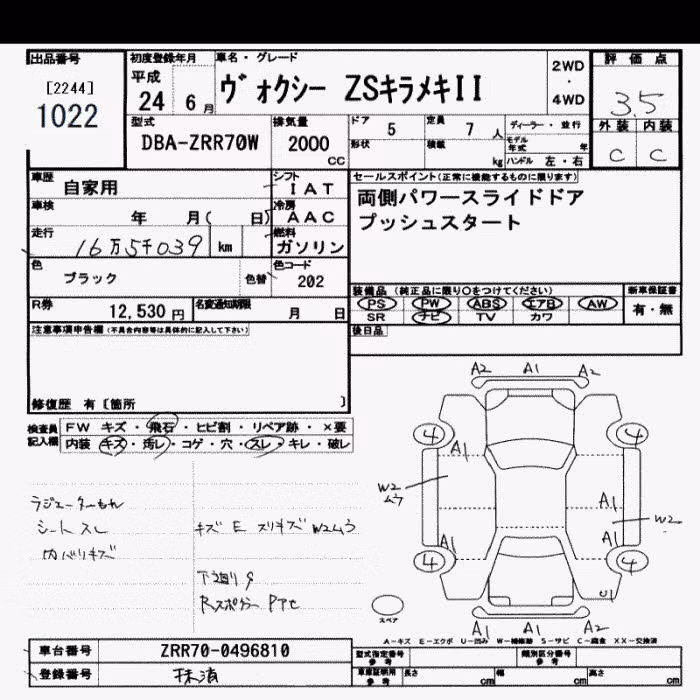 出品番号
[2244]
1022
初度登録年月
平成
24 6 月
車名・グレード
ヴォクシー ZSキラメキII
2WD
・
4WD
評価点
3.5
外装 内装
C C
型式
DBA-ZRR70W
排気量
2000
CC
ドア 5
定員 7 人
形状
積載 kg
ディーラー・並行
モデル年式 年
ハンドル 左・右
車歴
自家用
シフト
IAT
車検
年 月( 日)
冷房
AAC
走行
16万5千039 km
燃料
ガソリン
色
ブラック
色替
色コード
202
セールスポイント(正常に機能するものに限ります)
両側パワースライドドア
プッシュスタート
装備品 (純正品に限り〇をつけてください)
PS PW ABS エアB AW
SR ナビ TV カワ
新車保証書
有・無
後日品
R券
12,530 円
名変通知期限
月 日
注意事項申告欄(不具合内容等は具体的に記入して下さい)
修復歴 有〔箇所 〕
検査員
記入欄
FW キズ・飛石・ヒビ割・リペア跡・×要
内装 キズ・汚レ・コゲ・穴・スレ・キレ・破レ
ラジエーターもれ
シート スレ
内バリキズ
キズ E スリキズ W2ムラ
下廻りサ
Rスポイラー
A2 A1 A2
4 4
A1
W2
ムラ
A1
W2
A1 A1
4 4
U1
A1 A1
スペア
A-キズ E-エクボ U-凹み W-補修跡 S-サビ C-腐食 XX-交換済
車台番号
ZRR70-0496810
登録番号
抹消
型式指定番号
参考
類別区分番号
参考
車庫証明用
参考
長さ cm
幅 cm
高さ cm